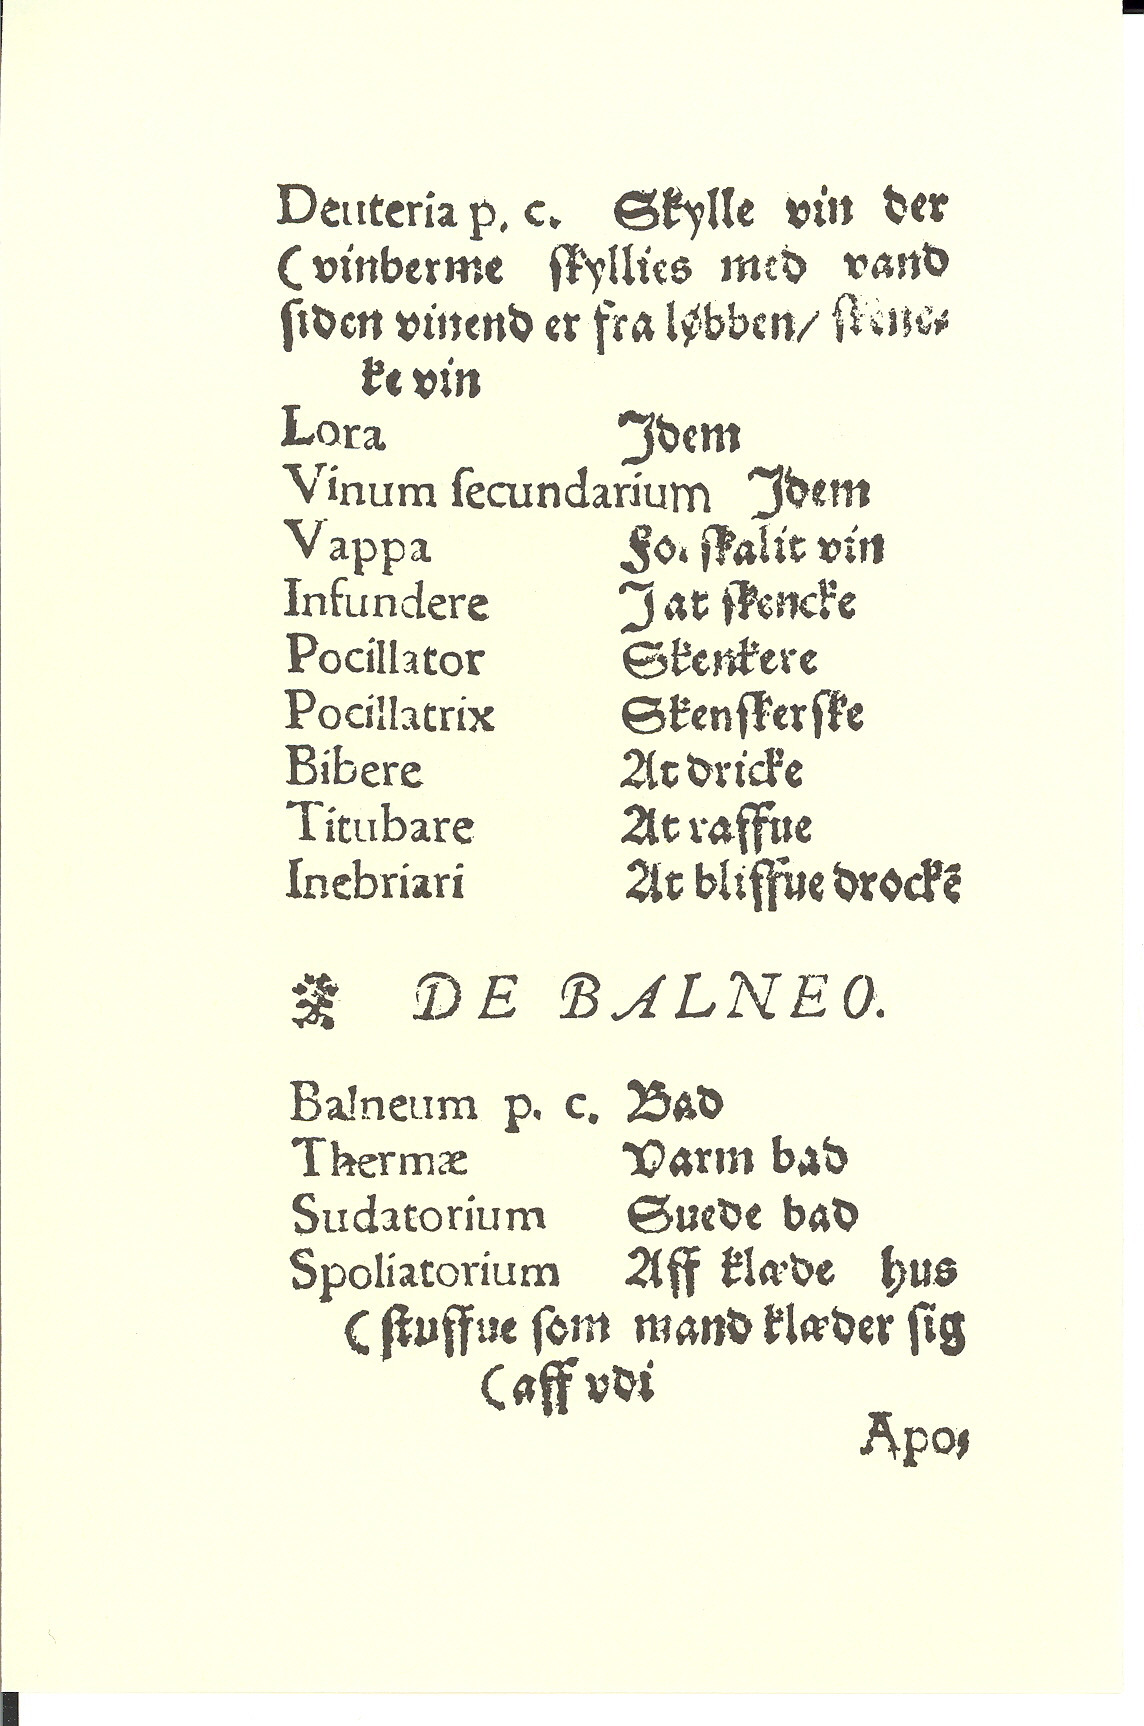 Deuteria p. c. Skylle vin der
(vinberme ſkyllies med vand
ſiden vinend er fra løbben/ ſkene⸗
ke vin
Lora Jdem
Vinum ſecundarium Jdem
Vappa Fo. ſkalit vin
Infundere J at ſkencke
Pocillator Skenkere
Pocillatrix Skenſkerſke
Bibere At dricke
Titubare At raffue
Inebriari At bliffue drockē
DE BALNEO.
Balneum p. c. Bad
Thermæ Varm bad
Sudatorium Suede bad
Spoliatorium Aff klæde hus
(ſtuffue ſom mand klæder ſig
(aff vdi
Apo⸗